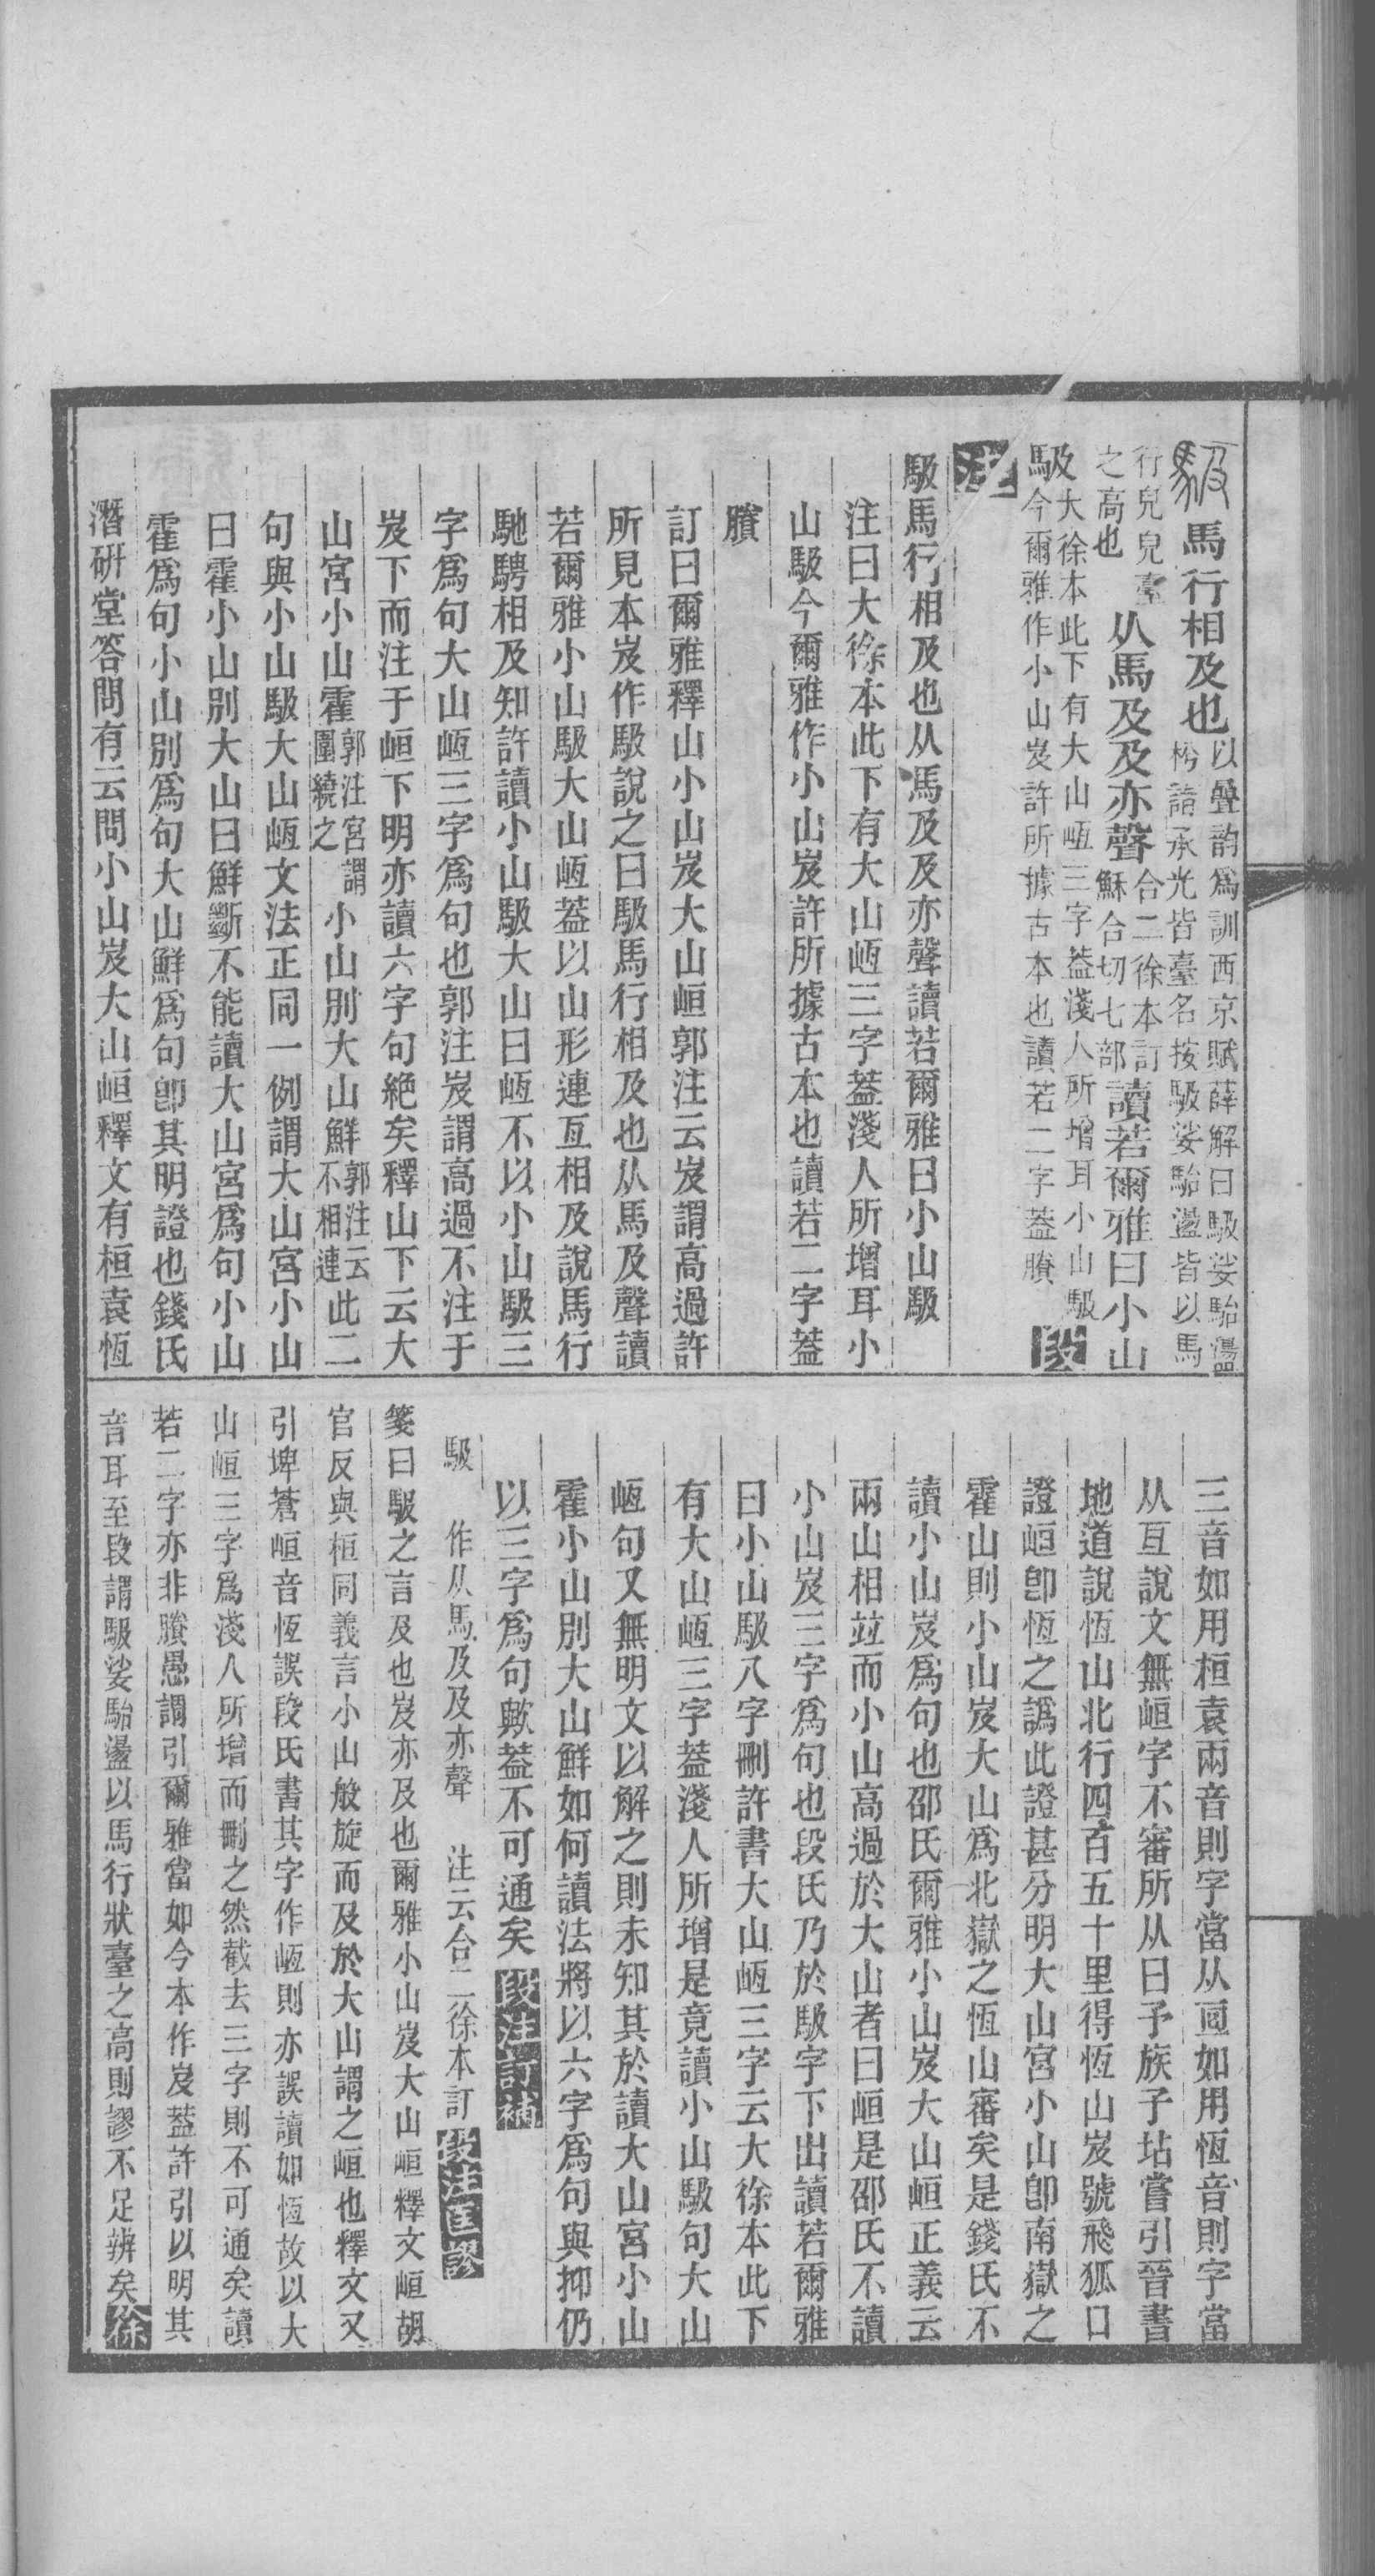 馺馬行相及也以曡韵爲訓西京賦薛解曰馺娑駘盪
枍詣承光皆臺名按馺娑駘盪皆以馬
行皃皃臺
之高也从馬及及亦聲合二徐本訂
穌合切七部讀若爾雅曰小山
馺大徐本此下有大山峘三字葢淺人所增耳小山馺
今爾雅作小山岌許所據古本也讀若二字葢賸段
注
馺馬行相及也从馬及及亦聲讀若爾雅曰小山馺
注曰大徐本此下有大山峘三字葢淺人所增耳小
山馺今爾雅作小山岌許所據古本也讀若二字葢
賸
訂曰爾雅釋山小山岌大山峘郭注云岌謂高過許
所見本岌作馺說之曰馺馬行相及也从馬及聲讀
若爾雅小山馺大山峘葢以山形連亙相及說馬行
馳騁相及知許讀小山馺大山曰峘不以小山馺三
字爲句大山峘三字爲句也郭注岌謂高過不注于
岌下而注于峘下明亦讀六字句絶矣釋山下云大
山宮小山霍郭注宮謂
圍繞之小山別大山鮮郭注云
不相連此二
句與小山馺大山峘文法正同一例謂大山宮小山
曰霍小山別大山曰鮮斷不能讀大山宮爲句小山
霍爲句小山別爲句大山鮮爲句卽其明證也錢氏
潛硏堂答問有云問小山岌大山峘釋文有桓袁恆
三音如用桓袁兩音則字當从亘如用恆音則字當
从亙說文無峘字不審所从曰予族子坫嘗引晉書
地道說恆山北行四百五十里得恆山岌號飛狐口
證峘卽恆之譌此證甚分明大山宮小山卽南嶽之
霍山則小山岌大山爲北嶽之恆山審矣是錢氏不
讀小山岌爲句也邵氏爾雅小山岌大山峘正義云
兩山相竝而小山高過於大山者曰峘是邵氏不讀
小山岌三字爲句也段氏乃於馺字下出讀若爾雅
曰小山馺八字刪許書大山峘三字云大徐本此下
有大山峘三字葢淺人所增是竟讀小山馺句大山
峘句又無明文以解之則未知其於讀大山宮小山
霍小山別大山鮮如何讀法將以六字爲句與抑仍
以三字爲句歟葢不可通矣段注訂補
馺　作从馬及及亦聲　注云合二徐本訂段注匡謬
箋曰馺之言及也岌亦及也爾雅小山岌大山峘釋文峘胡
官反與桓同義言小山般旋而及於大山謂之峘也釋文又
引埤蒼峘音恆誤段氏書其字作峘則亦誤讀如恆故以大
山峘三字爲淺人所增而刪之然截去三字則不可通矣讀
若二字亦非賸愚謂引爾雅當如今本作岌葢許引以明其
音耳至段謂馺娑駘盪以馬行狀臺之高則謬不足辨矣徐